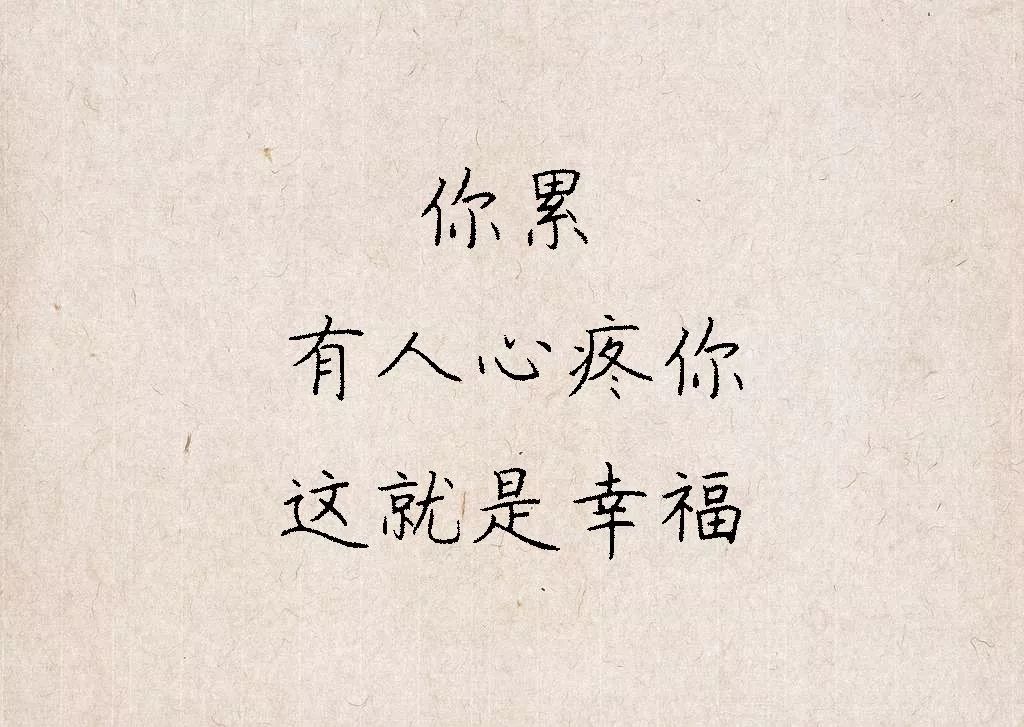 你累
有人心疼你
这就是幸福